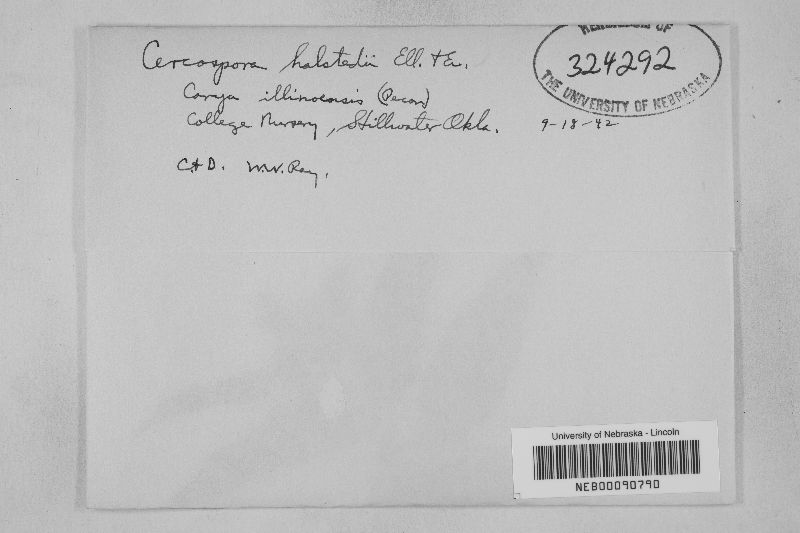 HERBARIUM OF
324292
THE UNIVERSITY OF NEBRASKA
Cercospora halstedii Ell. & Ev.
Carya illinoensis (Pecan)
College Nursery, Stillwater Okla. 9-18-42
C. & D. W.W. Ray.
University of Nebraska - Lincoln
NEB00090790